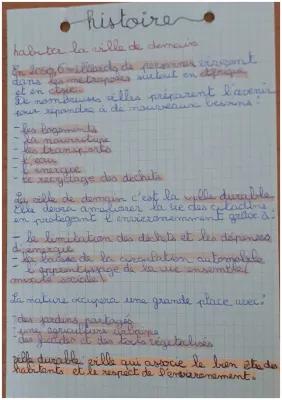 histoire
habiter la ville de demain
En 2050, 6 milliards de personnes vivront
dans les métropoles surtout en afrique
et en asie.
De nombreuses villes préparent l'avenir
pour répondre à de nouveaux besoins:
- les logements
- la nourriture
- les transports
- l'eau
- l'énergie
- le recyclage des déchets
La ville de demain c'est la ville durable.
Elle devra améliorer la vie des citadins
en protégeant l'environnement grâce à:
- la limitation des déchets et les dépenses
d'énergie
- la baisse de la circulation automobile
- l'apprentissage de la vie ensemble
(mixité sociale)
La nature occupera une grande place avec:
- des jardins partagés
- une agriculture urbaine
- des façades et des toits végétalisés
ville durable: ville qui associe le bien être des
habitants et le respect de l'environnement.